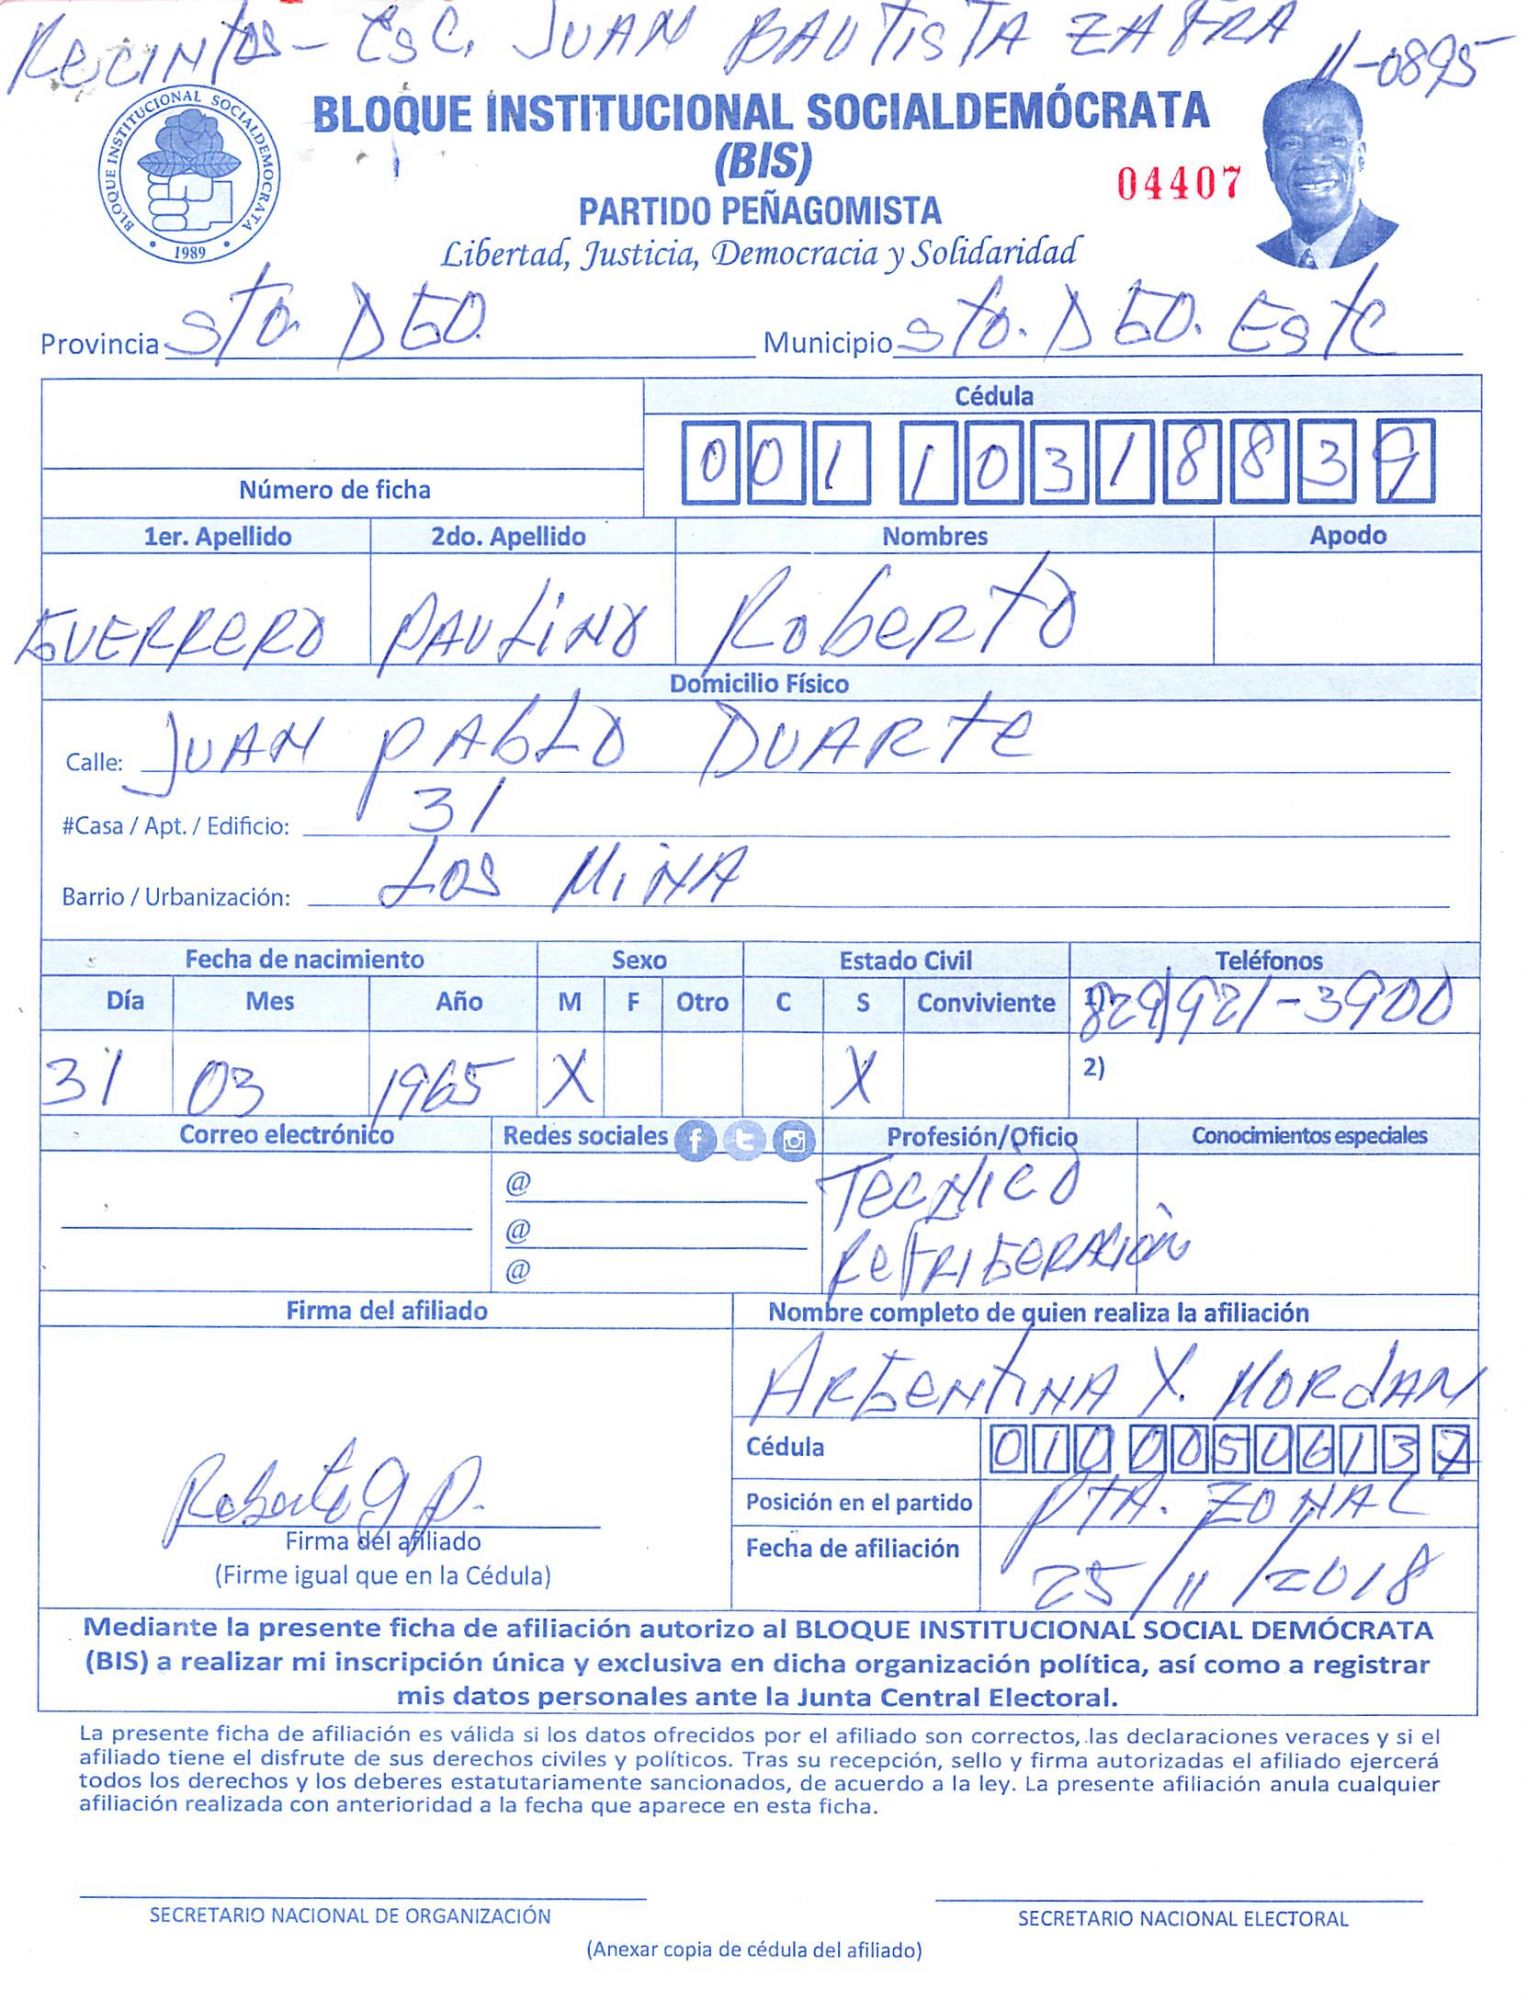 Recintos - Esc. JUAN BAUTISTA ZAFRA 11-0895
BLOQUE INSTITUCIONAL SOCIALDEMOCRATA
1989
BLOQUE INSTITUCIONAL SOCIALDEMÓCRATA
(BIS)
04407
PARTIDO PEÑAGOMISTA
Libertad, Justicia, Democracia y Solidaridad
Provincia Sto. DGO. Municipio Sto. DGO. Este
Cédula
001 1031883 9
Número de ficha
1er. Apellido 2do. Apellido Nombres Apodo
GUERRERO PAULINO Roberto
Domicilio Físico
Calle: JUAN PABLO DUARTE
#Casa / Apt. / Edificio: 31
Barrio / Urbanización: LOS MINA
Fecha de nacimiento Sexo Estado Civil Teléfonos
Día Mes Año M F Otro C S Conviviente 1) 829 921-3900
31 03 1965 X X 2)
Correo electrónico Redes sociales Profesión/Oficio Conocimientos especiales
@ TECNICO
@ REFRIGERACIÓN
@
Firma del afiliado Nombre completo de quien realiza la afiliación
ARGENTINA Y. MORDAN
Cédula 010 0050613 7
Roberto G P.
Posición en el partido PTA. ZONAL
Firma del afiliado
Fecha de afiliación 25/11/2018
(Firme igual que en la Cédula)
Mediante la presente ficha de afiliación autorizo al BLOQUE INSTITUCIONAL SOCIAL DEMÓCRATA
(BIS) a realizar mi inscripción única y exclusiva en dicha organización política, así como a registrar
mis datos personales ante la Junta Central Electoral.
La presente ficha de afiliación es válida si los datos ofrecidos por el afiliado son correctos, las declaraciones veraces y si el
afiliado tiene el disfrute de sus derechos civiles y políticos. Tras su recepción, sello y firma autorizadas el afiliado ejercerá
todos los derechos y los deberes estatutariamente sancionados, de acuerdo a la ley. La presente afiliación anula cualquier
afiliación realizada con anterioridad a la fecha que aparece en esta ficha.
SECRETARIO NACIONAL DE ORGANIZACIÓN SECRETARIO NACIONAL ELECTORAL
(Anexar copia de cédula del afiliado)